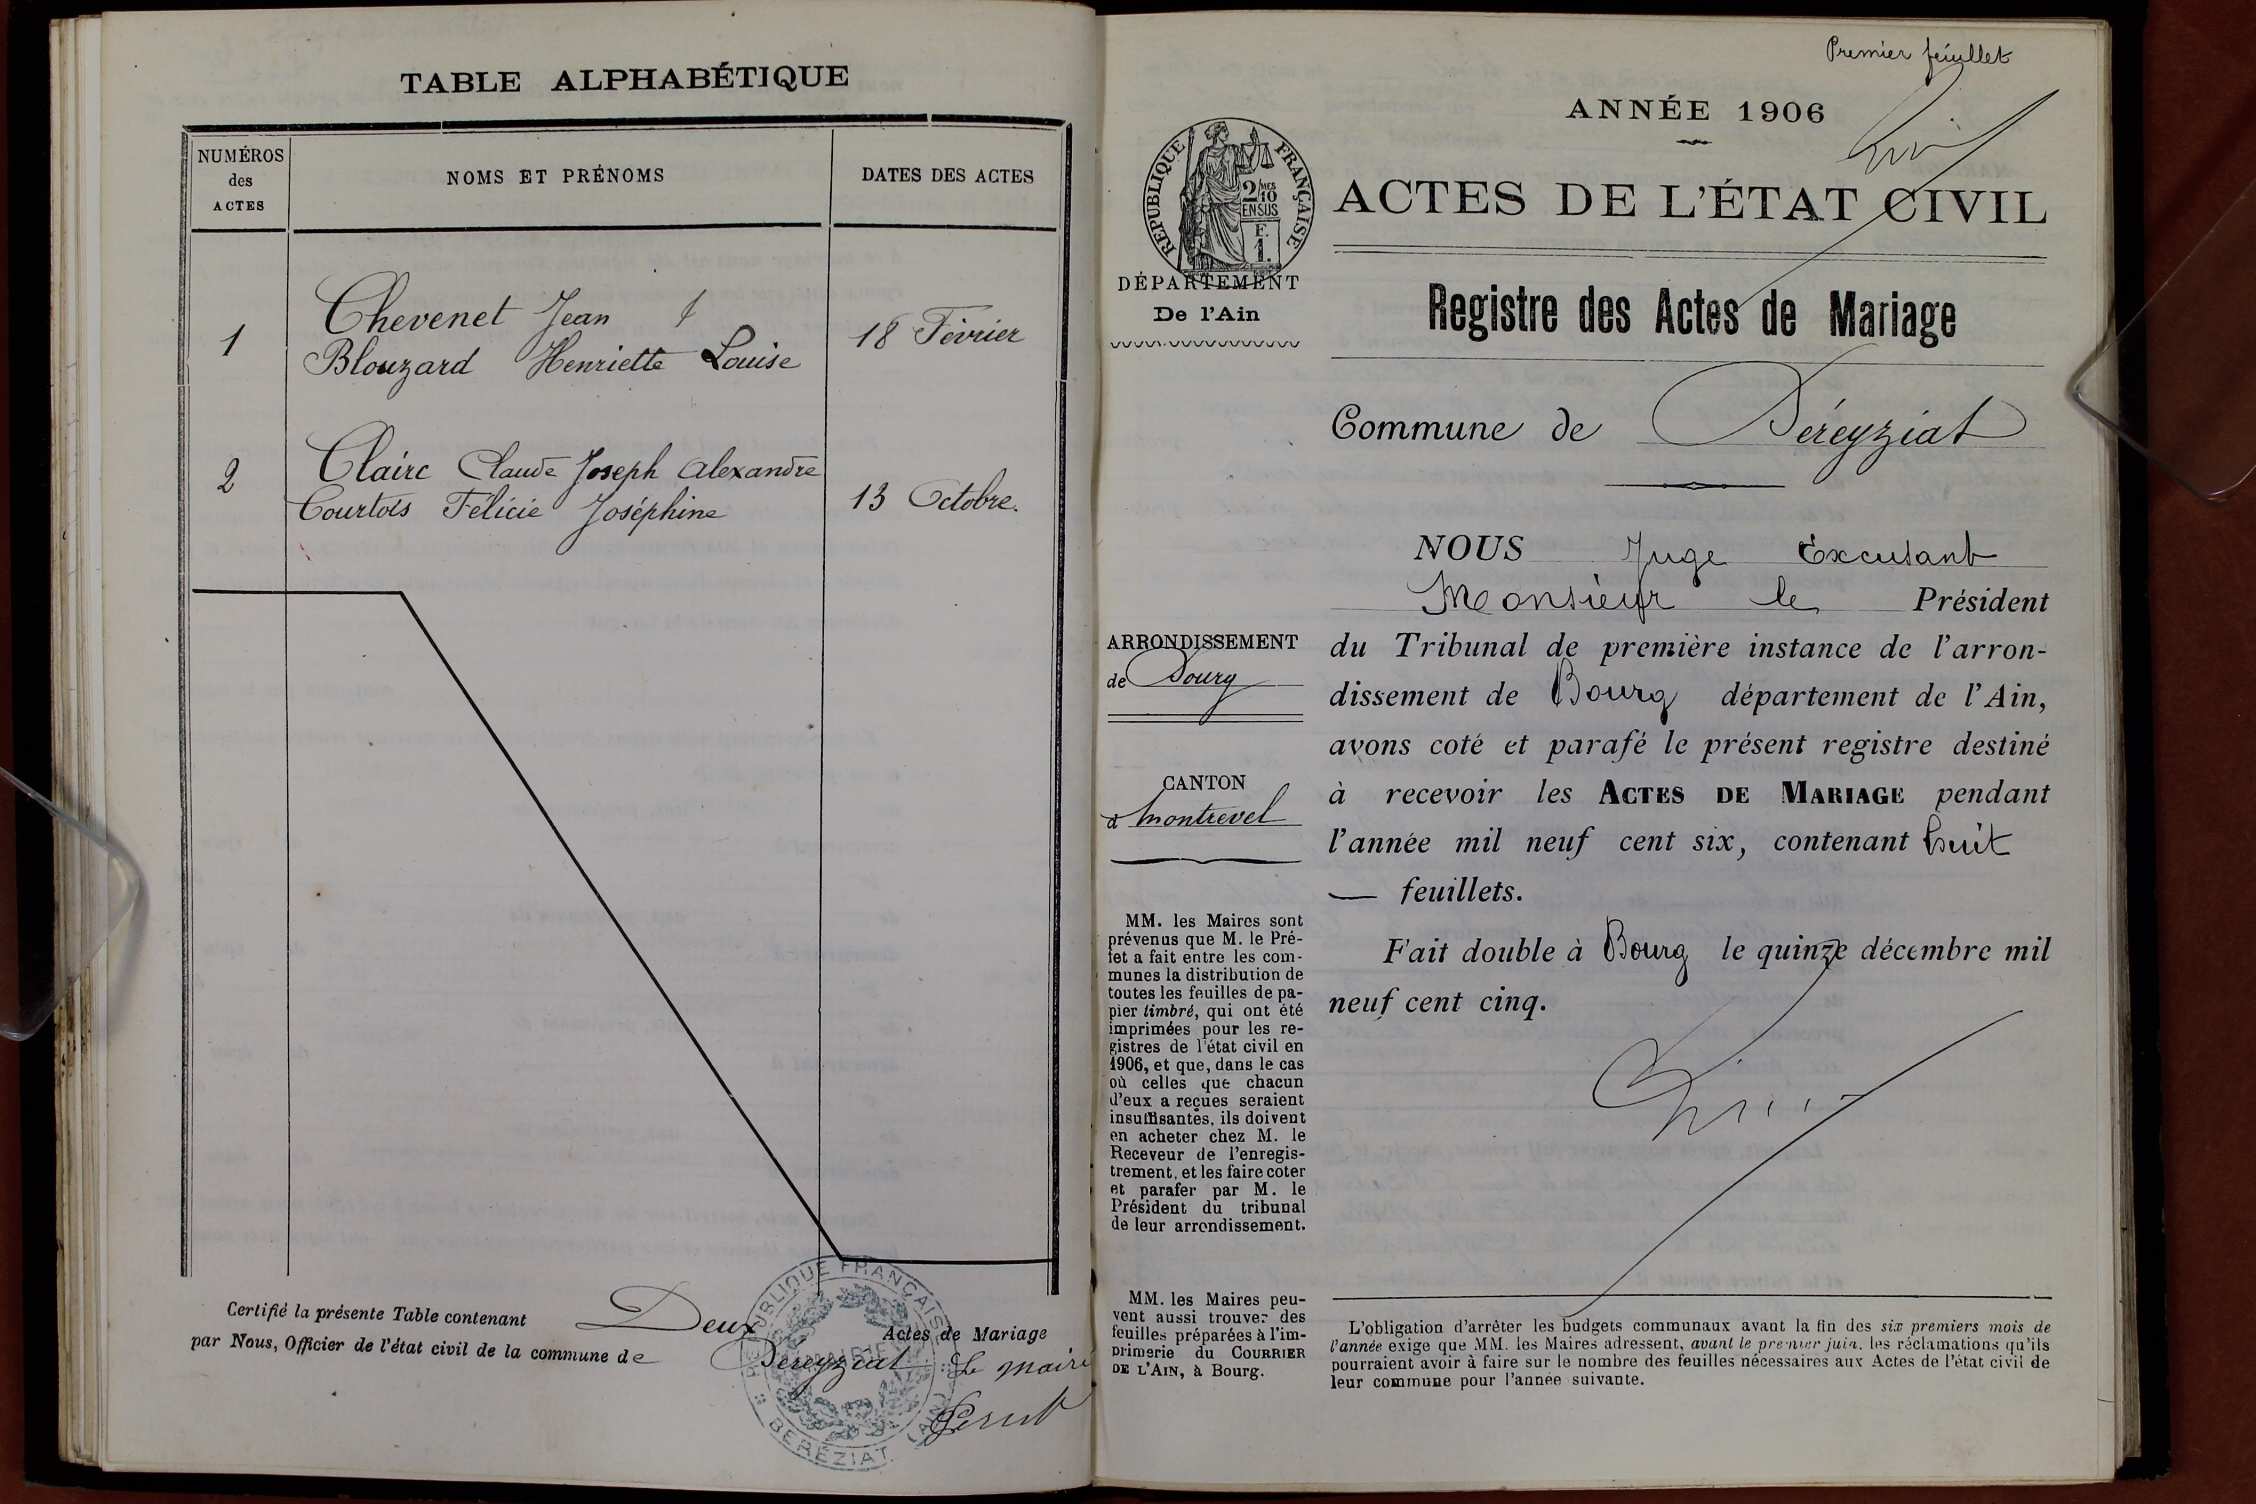 TABLE ALPHABÉTIQUE
NUMÉROS
des
ACTES
NOMS ET PRÉNOMS
DATES DES ACTES
1
Chevenet Jean
Blouzard Henriette Louise
18 Février
2
Clairc Claude Joseph Alexandre
Courtois Félicie Joséphine
13 Octobre.
Certifié la présente Table contenant Deux Actes de Mariage
par Nous, Officier de l'état civil de la commune de Béreyziat Le maire
RÉPUBLIQUE FRANÇAISE
MAIRIE
BERÉZIAT (AIN)
Premier feuillet
ANNÉE 1906
RÉPUBLIQUE FRANÇAISE
2/10
MES
EN SUS
F.
1.
ACTES DE L'ÉTAT CIVIL
DÉPARTEMENT
De l'Ain
Registre des Actes de Mariage
Commune de Béreyziat
NOUS Juge Excusant
Monsieur le Président
ARRONDISSEMENT
de Bourg
du Tribunal de première instance de l'arron-
dissement de Bourg département de l'Ain,
avons coté et parafé le présent registre destiné
à recevoir les ACTES DE MARIAGE pendant
l'année mil neuf cent six, contenant huit
— feuillets.
Fait double à Bourg le quinze décembre mil
neuf cent cinq.
CANTON
d Montrevel
MM. les Maires sont
prévenus que M. le Pré-
fet a fait entre les com-
munes la distribution de
toutes les feuilles de pa-
pier timbré, qui ont été
imprimées pour les re-
gistres de l'état civil en
1906, et que, dans le cas
où celles que chacun
d'eux a reçues seraient
insuffisantes, ils doivent
en acheter chez M. le
Receveur de l'enregis-
trement, et les faire coter
et parafer par M. le
Président du tribunal
de leur arrondissement.
MM. les Maires peu-
vent aussi trouver des
feuilles préparées à l'im-
primerie du COURRIER
DE L'AIN, à Bourg.
L'obligation d'arrêter les budgets communaux avant la fin des six premiers mois de
l'année exige que MM. les Maires adressent, avant le premier juin, les réclamations qu'ils
pourraient avoir à faire sur le nombre des feuilles nécessaires aux Actes de l'état civil de
leur commune pour l'année suivante.